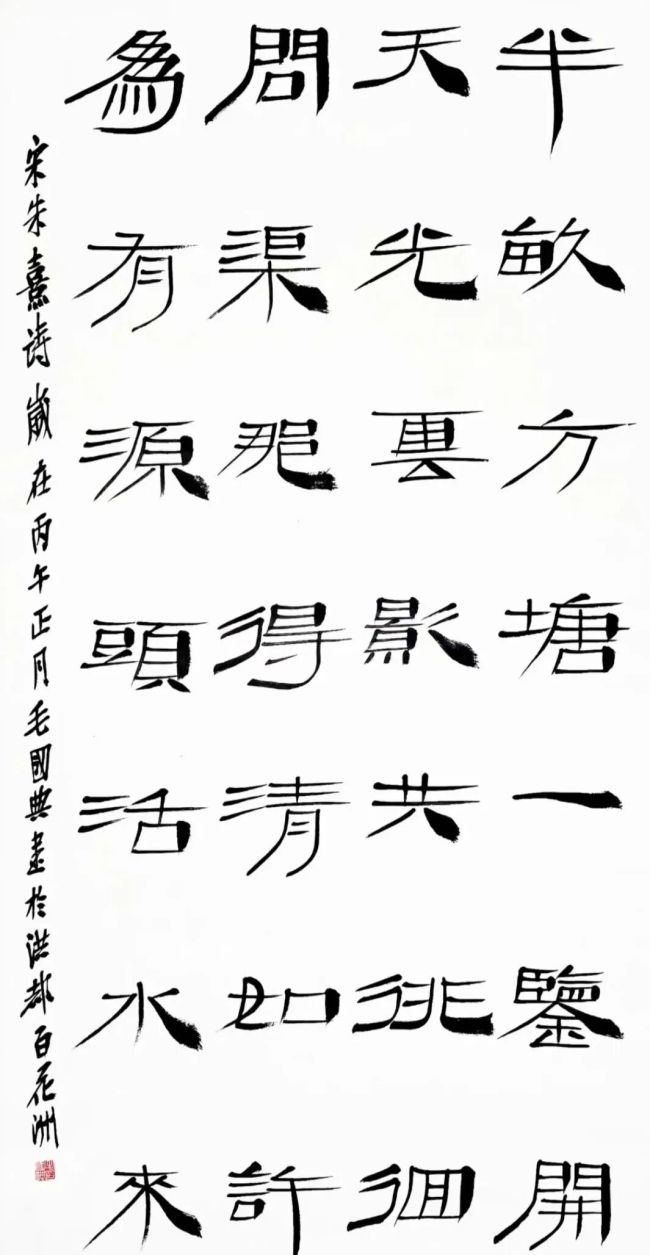 半畝方塘一鑒開
天光雲影共徘徊
問渠那得清如許
為有源頭活水來
宋朱熹詩歲在丙午正月毛國典書於洪都百花洲